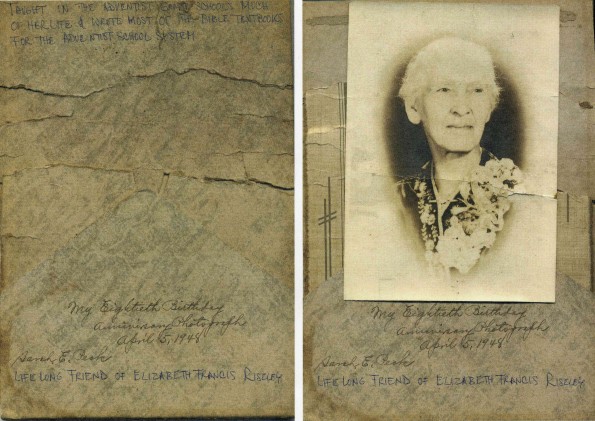 TAUGHT IN THE ADVENTIST SCHOOLS MUCH
OF HER LIFE & WROTE MOST OF THE BIBLE TEXTBOOKS
FOR THE ADVENTIST SCHOOL SYSTEM
My Eightieth Birthday
Anniversary Photograph
April 5, 1948
Sarah E. Peck
LIFE LONG FRIEND OF ELIZABETH FRANCIS RISELEY
My Eightieth Birthday
Anniversary Photograph
April 5, 1948
Sarah E. Peck
LIFE LONG FRIEND OF ELIZABETH FRANCIS RISELEY